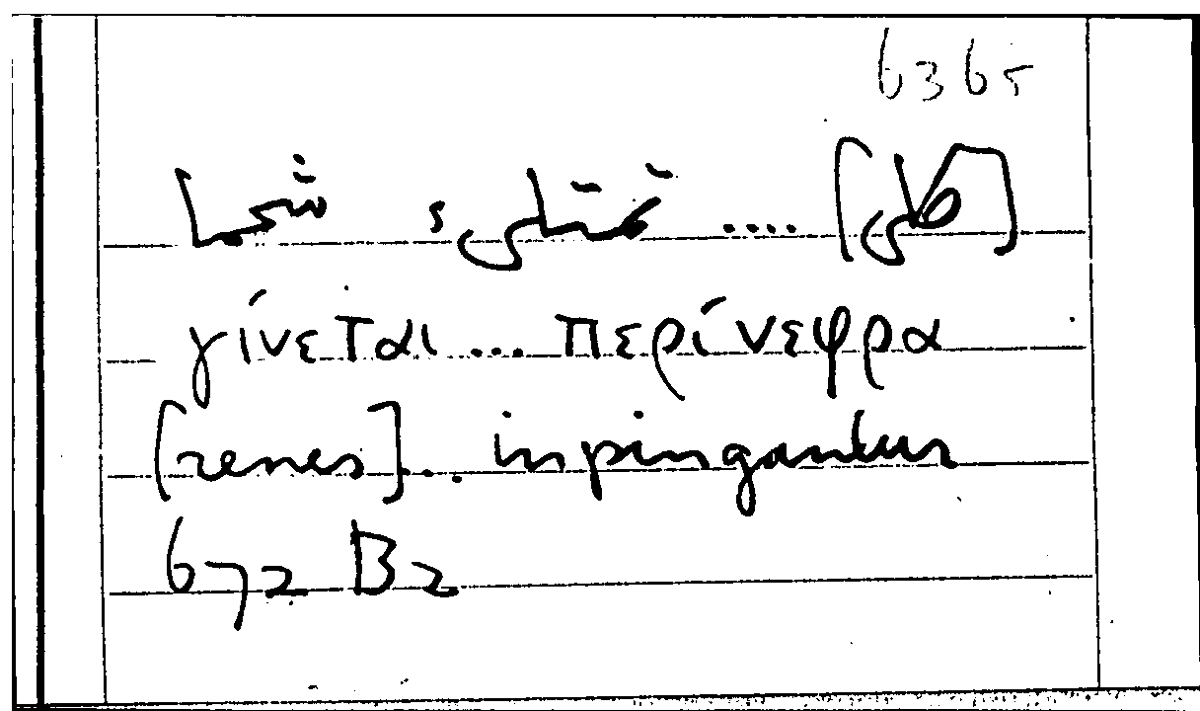 6365
[كلى] .... تمتلىء شحما
γίνεται ... περίνεφρα
[renes] ... inpingantur
672 B2